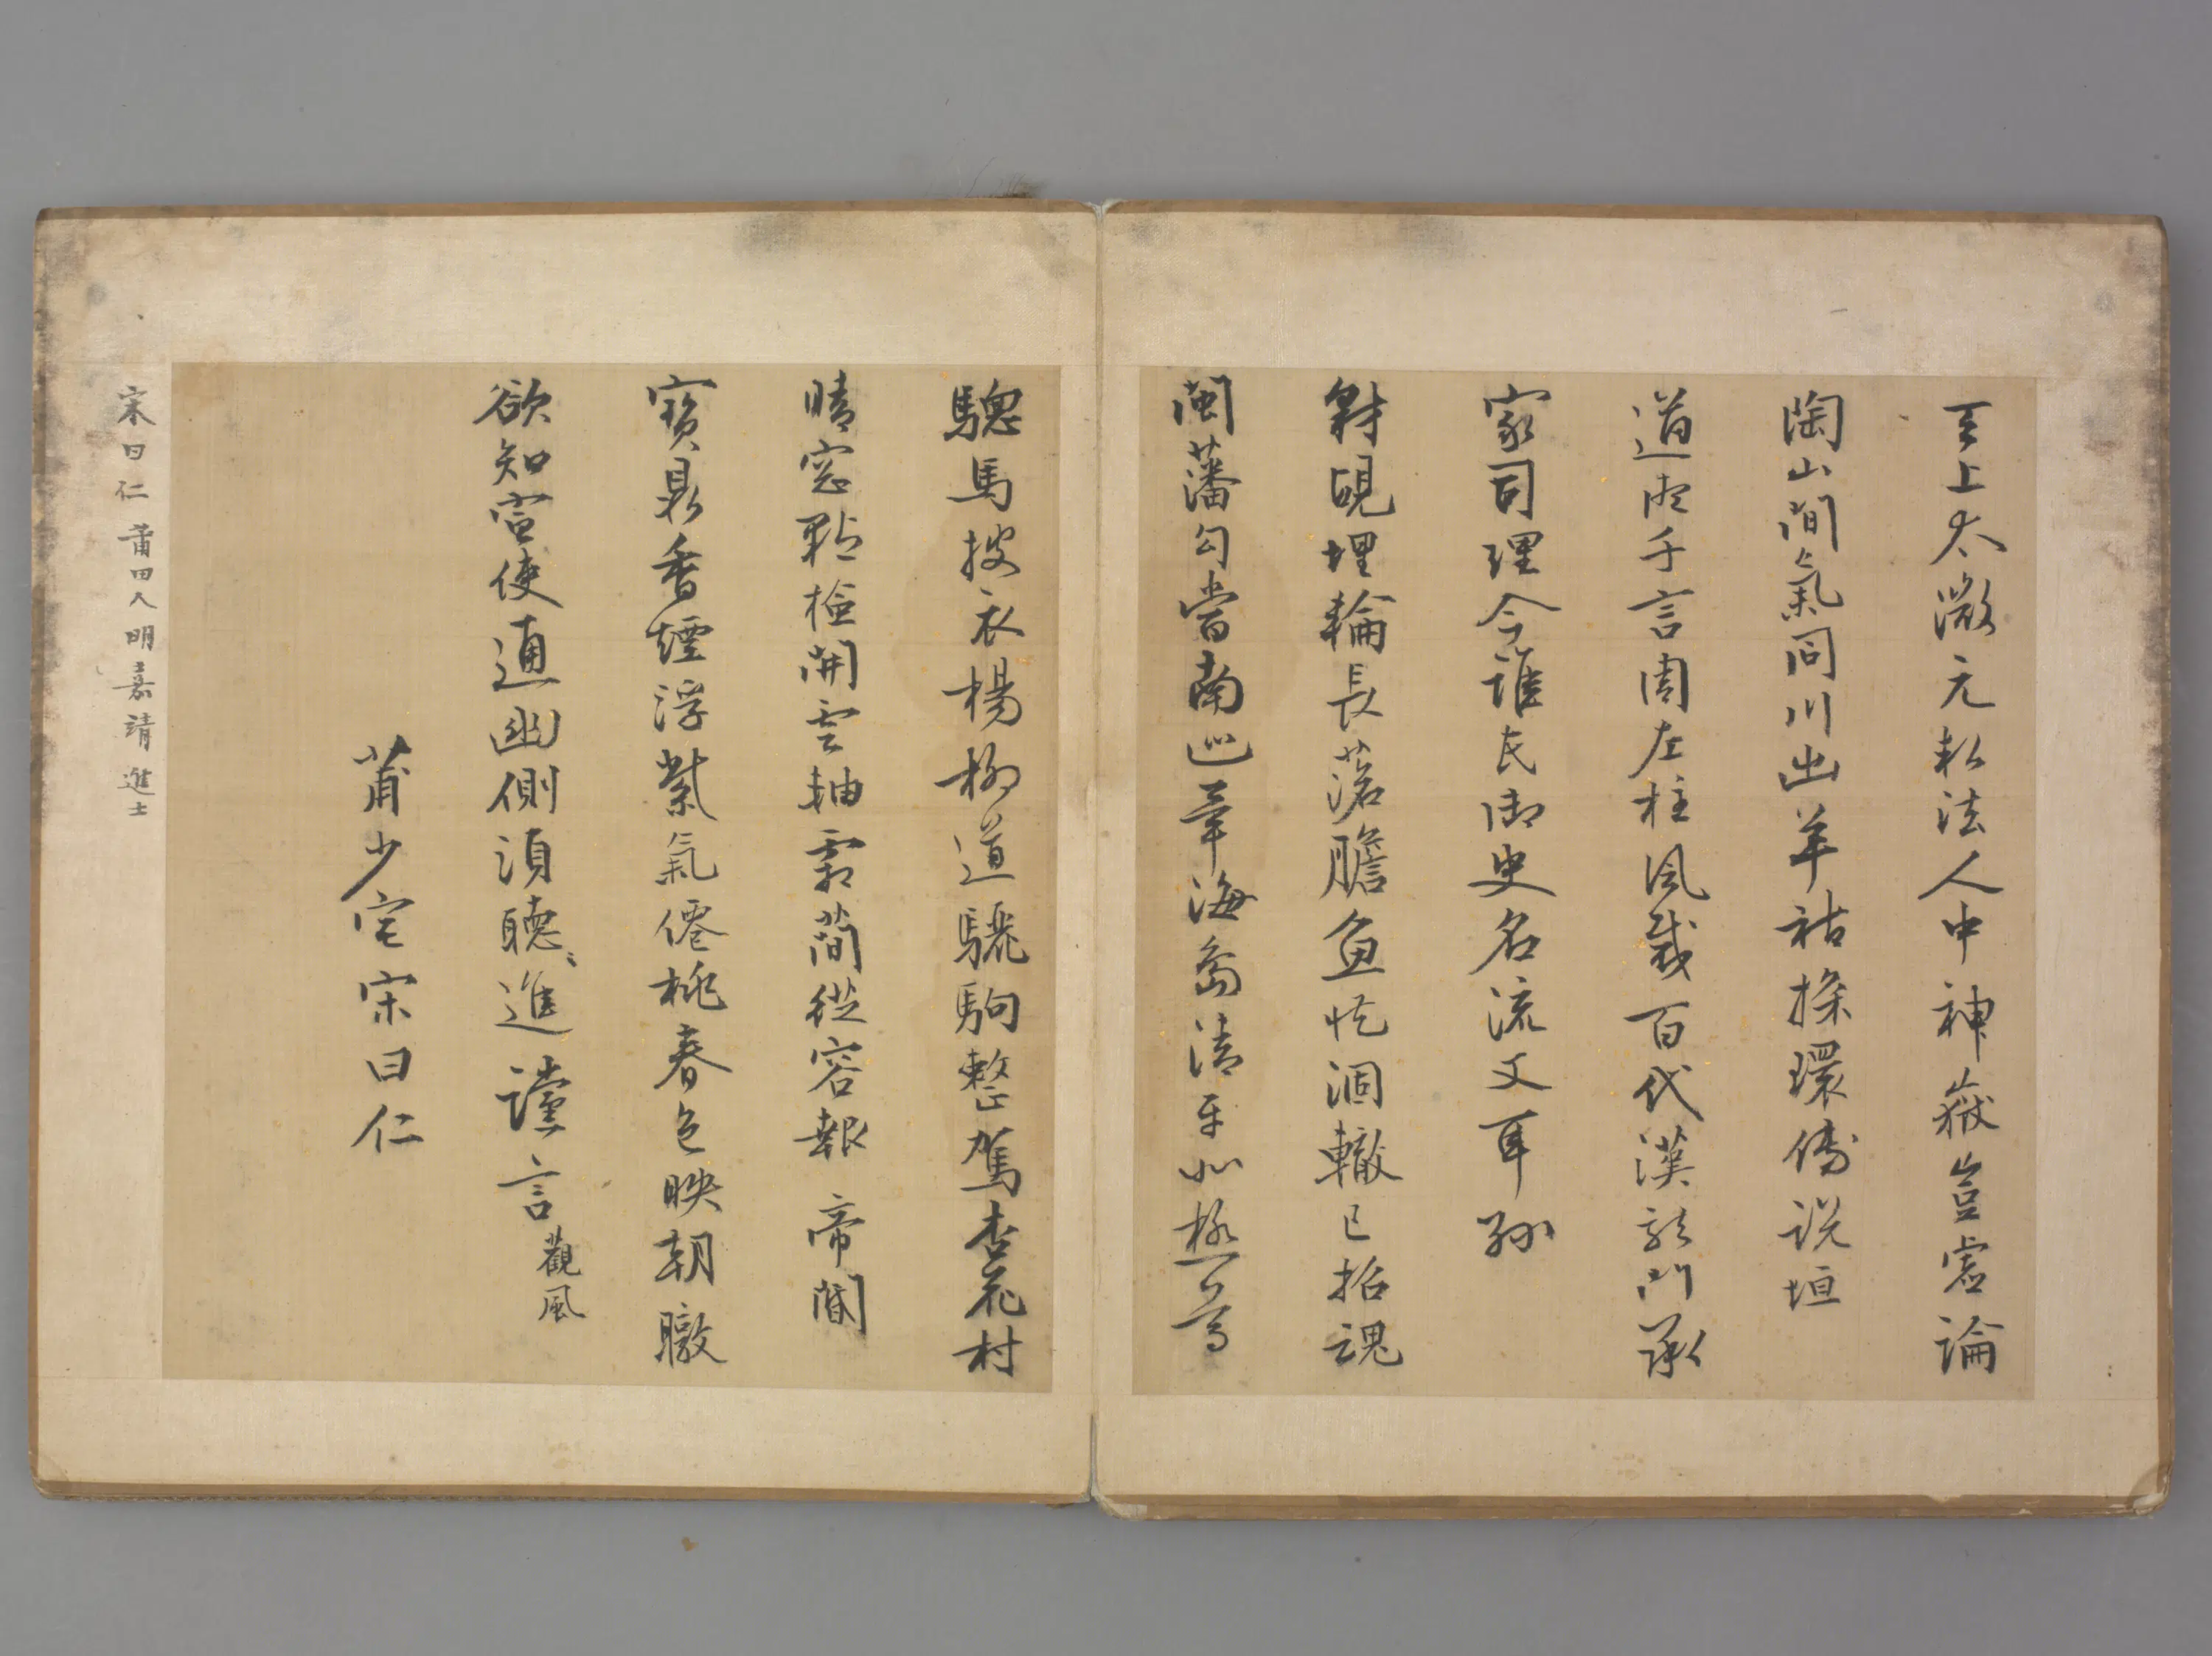 天上太微元執法人中神嶽豈虛論
陶山間氣同川出羊祜探環傳説垣
道術千言周左柱風裁百代漢龍門承
家司理今誰氏御史名流文耳孫
豺睍埋輪長落膽魚忙涸轍已招魂
閩藩勾當南巡筆海島清平北極尊
驄馬披衣楊柳道驪駒整駕杏花村
晴窓點檢開雲抽霜簡從容報帝閽
寶鼎香煙浮紫氣僊桃春色映朝暾
欲知宣使通幽側須聽進讜言觀風
莆少宅宋曰仁
宋曰仁 莆田人明嘉靖進士